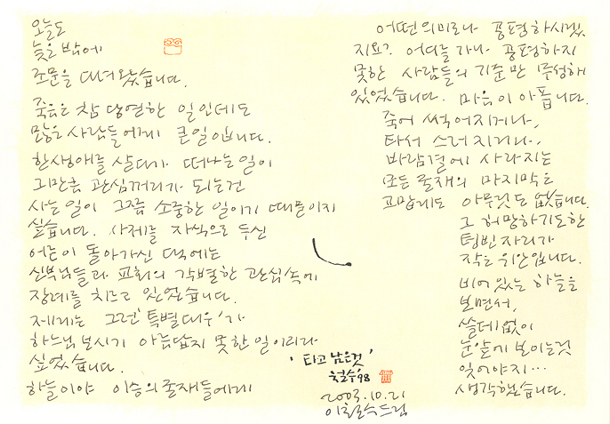 오늘도
늦은 밤에
조문을 다녀왔습니다.
죽음은 참 당연한 일인데도
많은 사람들에게 큰일입니다.
한생애를 살다가 떠나는 일이
그만큼 관심꺼리가 되는건
사는 일이 그쯤 소중한 일이기 때문이지
싶습니다. 사제를 자식으로 두신
어른이 돌아가신 댁에는
신부님들과 교회의 각별한 관심속에
장례를 치르고 있었습니다.
제게는 그런 '특별대우'가
하느님 보시기 아름답지 못한 일이리라
싶었습니다.
하늘이야 이승의 존재들에게
어떤 의미로나 공평하시겠
지요? 어디를 가나 공평하지
못한 사람들의 기준만 무성해
있었습니다. 마음이 아픕니다.
죽어 썩어지거나,
타서 스러지거나,
바람결에 사라지는
모든 존재의 마지막은
고맙게도 아무것도 없습니다.
그 허망하기도한
텅빈 자리가
작은 위안입니다.
비어있는 하늘을
보면서,
쓸데없이
눈앞에 보이는것
잊어야지...
생각했습니다.
'타고 남은것'
철수 '98
2003.10.21
이철수드림